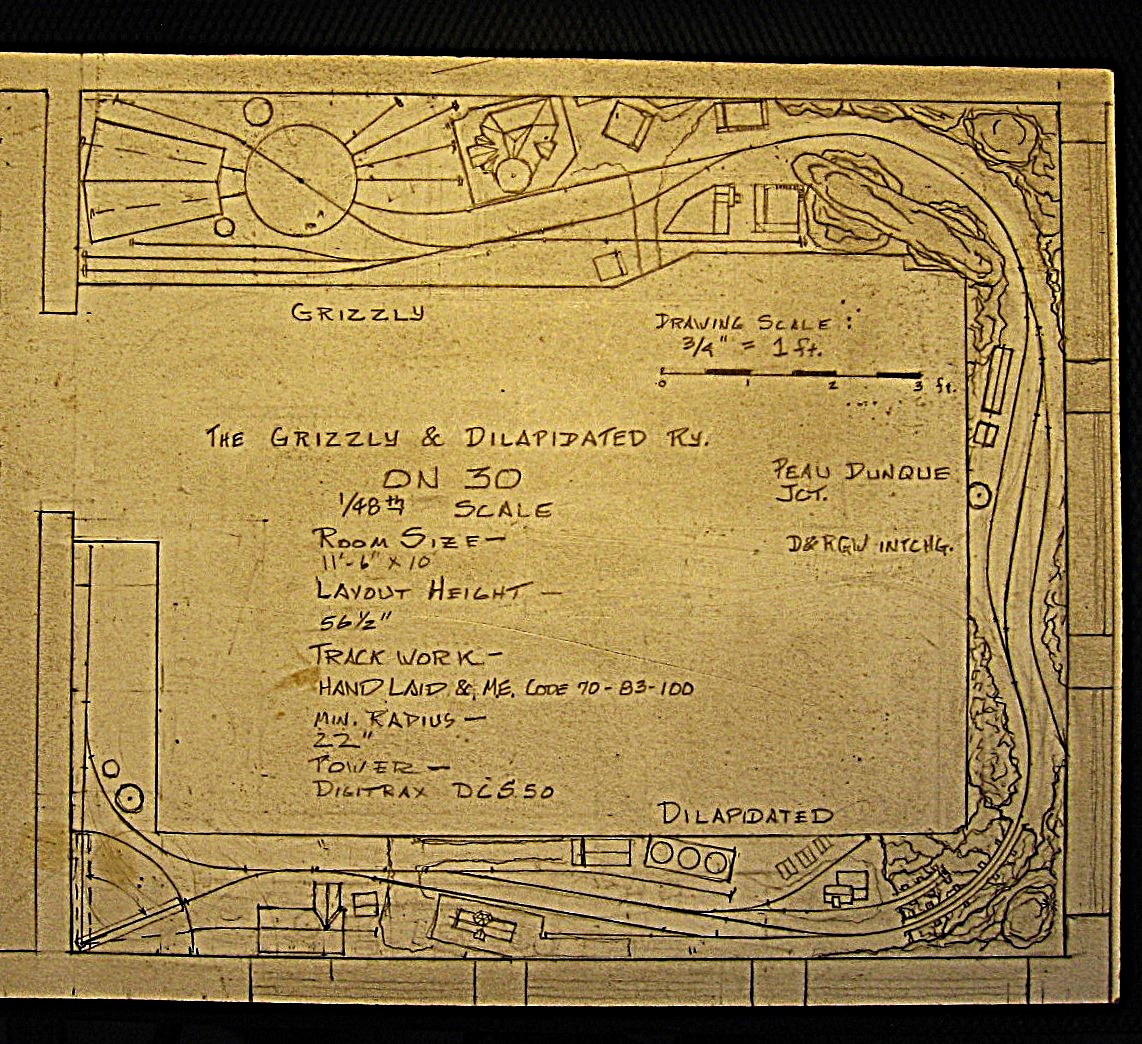 GRIZZLY
DRAWING SCALE :
3/4" = 1 ft.
0 1 2 3 ft.
THE GRIZZLY & DILAPIDATED RY.
ON 30
1/48th SCALE
ROOM SIZE —
11'-6" x 10
LAYOUT HEIGHT —
56 1/2"
TRACK WORK —
HAND LAID & ME, CODE 70-83-100
MIN. RADIUS —
22"
POWER —
DIGITRAX DCS 50
PEAU DUNQUE
JCT.
D&RGW INTCHG.
DILAPIDATED